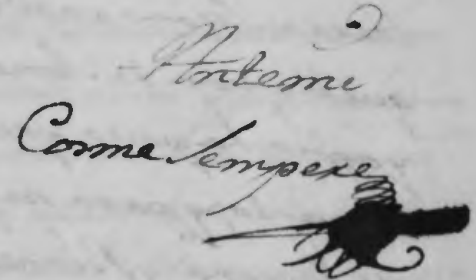 Antemi
Cosme Sempere